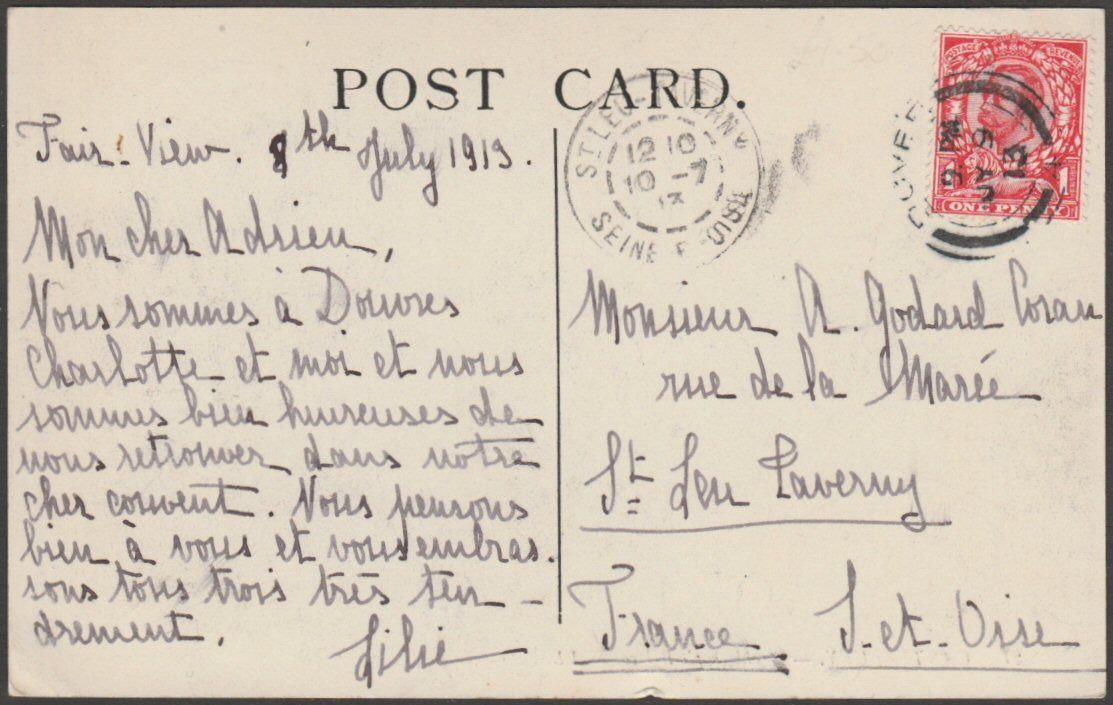 POST CARD.
Fair-View. 8th July 1913.
Mon cher Adrien,
Nous sommes à Douvres
Charlotte et moi et nous
sommes bien heureuses de
nous retrouver dans notre
cher couvent. Nous pensons
bien à vous et vous embras.
sons tous trois très ten-
drement.
Monsieur A. Godard
rue de la Marée
St Leu Taverny
France S-et-Oise
ST LEU-TAVERNY
12 10
10 -7
13
SEINE-ET-OISE
DOVER
POSTAGE REVENUE
1 1
ONE PENNY